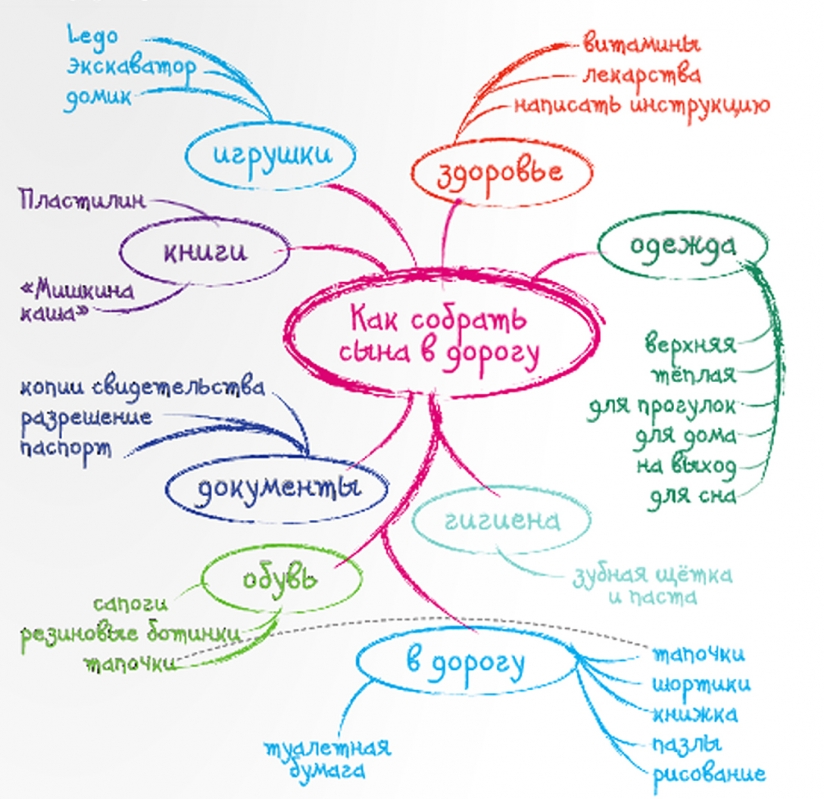 Lego
экскаватор
домик
игрушки
витамины
лекарства
написать инструкцию
здоровье
Пластилин
книги
«Мишкина
каша»
одежда
верхняя
тёплая
для прогулок
для дома
на выход
для сна
Как собрать
сына в дорогу
копии свидетельства
разрешение
паспорт
документы
гигиена
зубная щётка
и паста
обувь
сапоги
резиновые ботинки
тапочки
в дорогу
тапочки
шортики
книжка
пазлы
рисование
туалетная
бумага